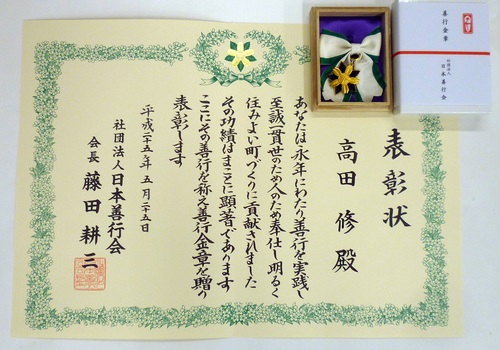 表彰状
高田 修 殿
あなたは永年にわたり善行を実践し
至誠一貫世のため人のため奉仕し明るく
住みよい町づくりに貢献されました
その功績はまことに顕著であります
ここにその善行を称え善行金章を贈り
表彰します
平成二十五年 五月二十五日
社団法人 日本善行会
会長 藤田耕三
善行金章
社団法人
日本善行会